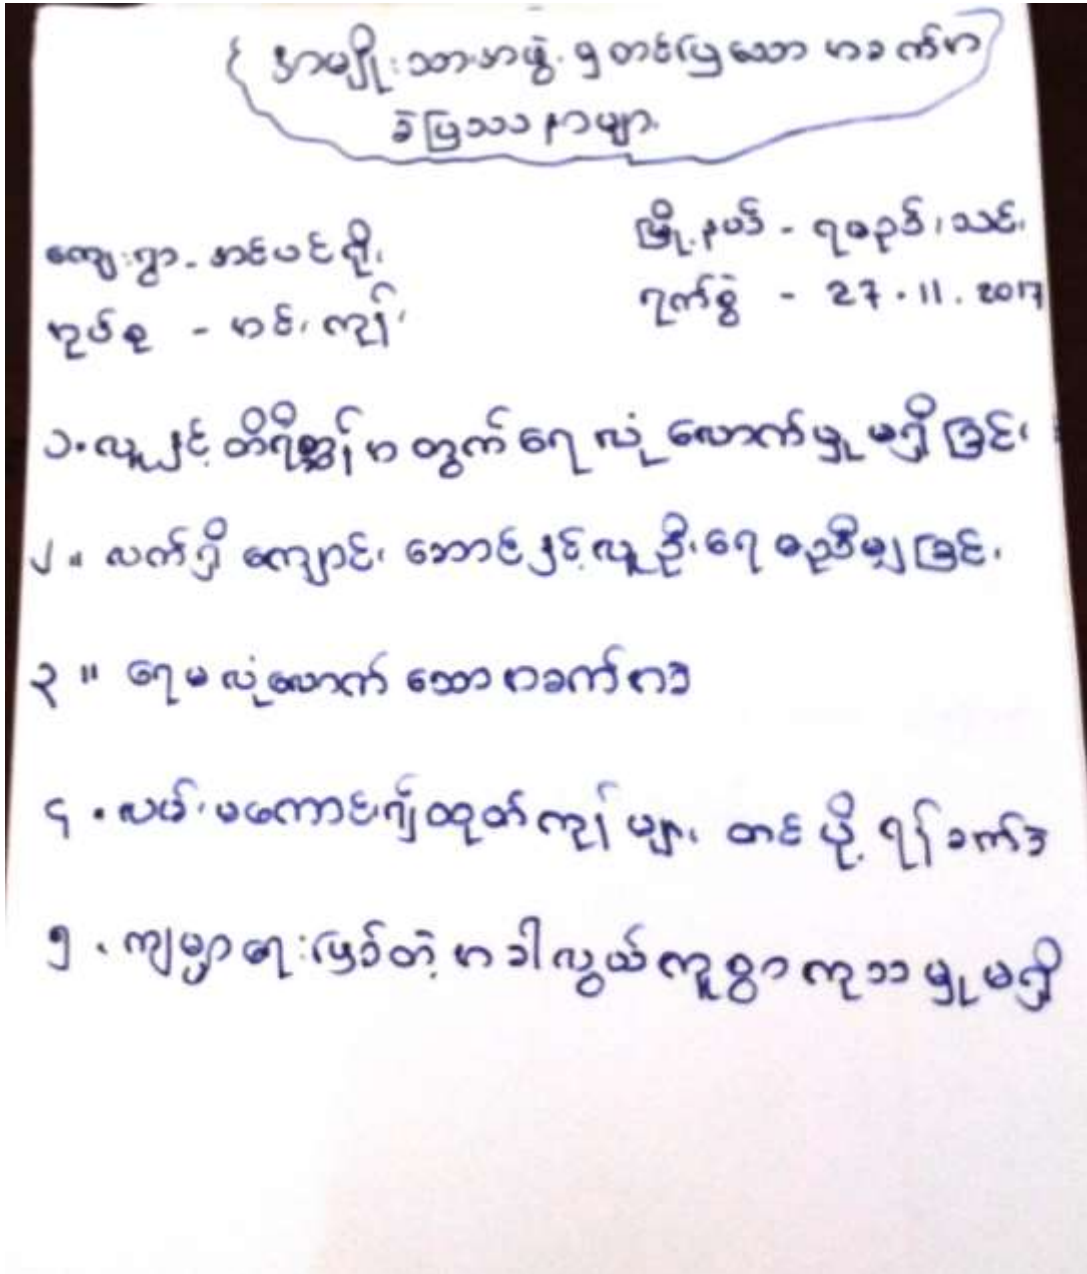 အမျိုးသားအဖွဲ့မှ တင်ပြသော အခက်အ
ခဲပြဿနာများ
ကျေးရွာ - အင်ပင်ဗို့
မြို့နယ် - ရမည်းသင်း
အုပ်စု - အင်းကုန်း
ရက်စွဲ - 27.11.2017
၁. လူနှင့်တိရိစ္ဆာန်အတွက်ရေလုံလောက်မှုမရှိခြင်း
၂။ လက်ရှိကျောင်းဆောင်နှင့်လူဦးရေမညီမျှခြင်း
၃။ ရေမလုံလောက်သောအခက်အခဲ
၄. လမ်းမကောင်း၍ထုတ်ကုန်များတင်ပို့ရန်ခက်ခဲ
၅. ကျမ္မာရေးဖြစ်တဲ့အခါလွယ်ကူစွာကုသမှုမရှိ